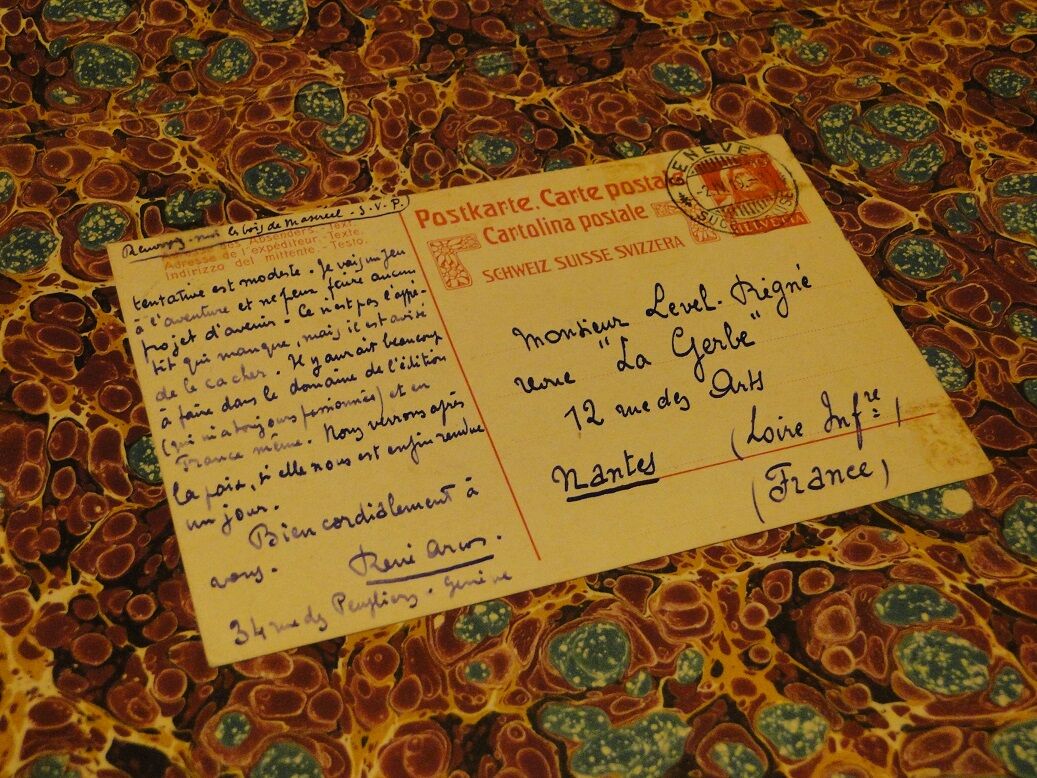 Renvoyez-moi le bois de Masereel - S.V.P.
des Absenders. Text.
Adresse de l'expéditeur. Texte.
Indirizzo del mittente. Testo.
tentative est modeste. Je vais un peu
à l'aventure et ne peux faire aucun
projet d'avenir. Ce n'est pas l'appé-
tit qui manque, mais il est avisé
de le cacher. Il y aurait beaucoup
à faire dans le domaine de l'édition
(qui m'a toujours passionné) et en
France même. Nous verrons après
la paix, si elle nous est enfin rendue
un jour.
Bien cordialement à
vous.
René Arcos.
34 rue des Peupliers - Genève
Postkarte. Carte posta
Cartolina postale
SCHWEIZ SUISSE SVIZZERA
GENÈVE
SUCC
HELVETIA
Monsieur Level-Régné
revue "La Gerbe"
12 rue des Arts
Nantes
(Loire Infre)
(France)